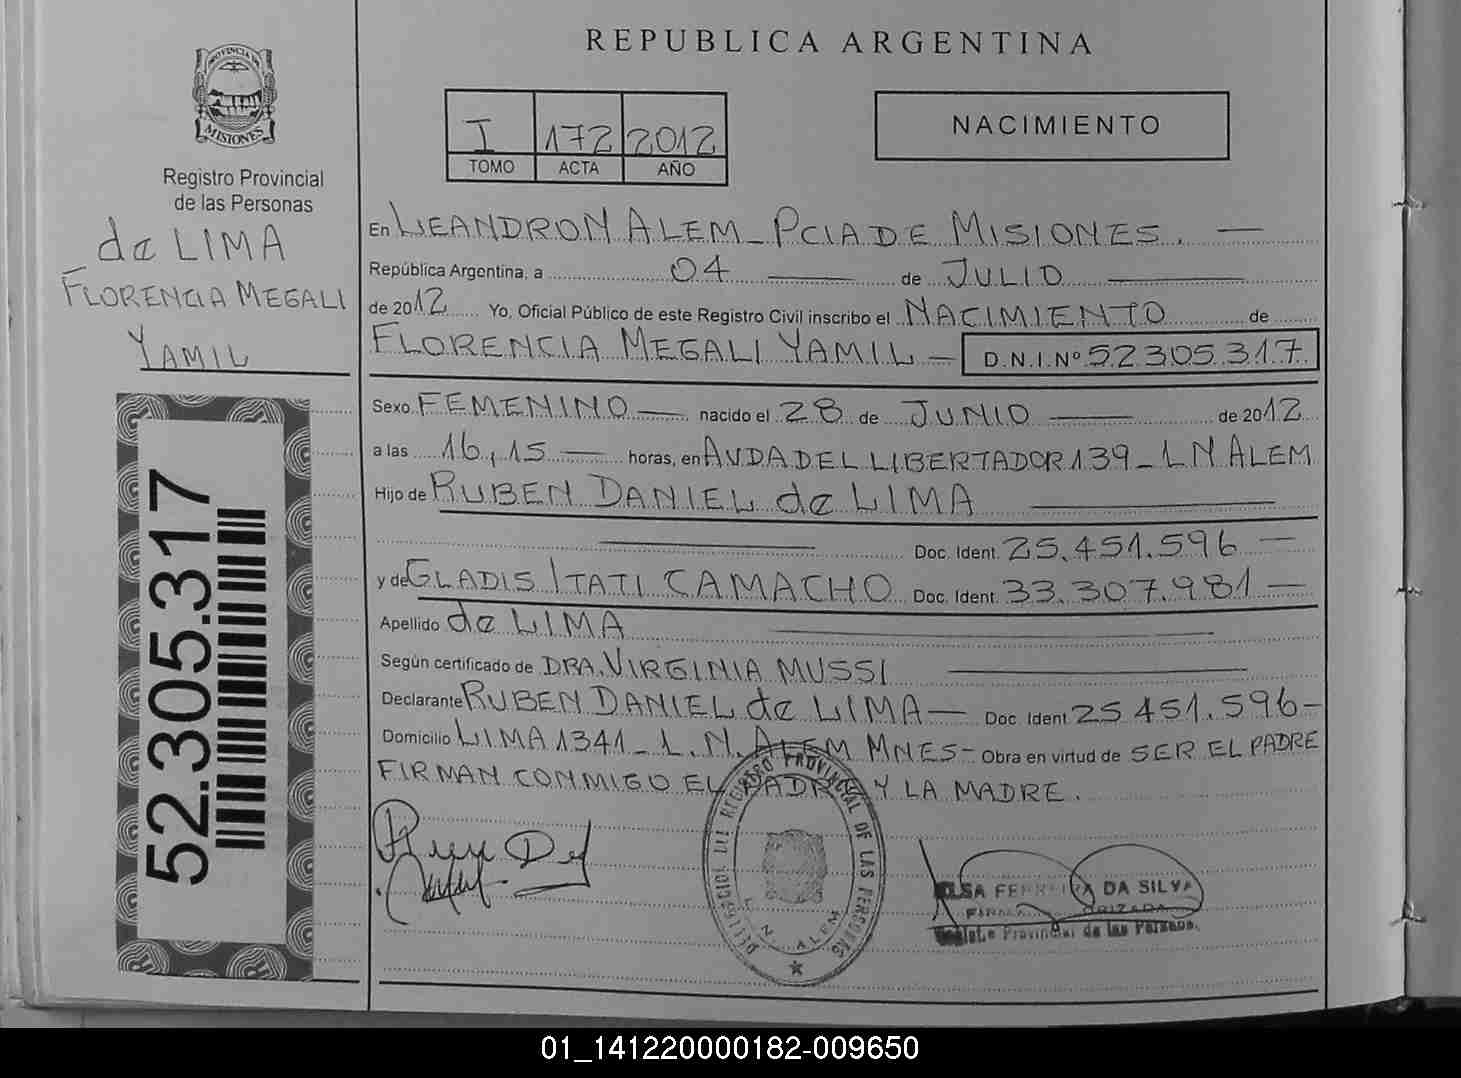 REPUBLICA ARGENTINA
PROVINCIA DE
MISIONES
Registro Provincial
de las Personas
de LIMA
FLORENCIA MEGALI
YAMIL
52.305.317
I 172 2012
TOMO ACTA AÑO
NACIMIENTO
En LEANDRO N ALEM - PCIA DE MISIONES.
República Argentina, a 04 de JULIO
de 2012 Yo, Oficial Público de este Registro Civil inscribo el NACIMIENTO de
FLORENCIA MEGALI YAMIL - D.N.I.Nº 52305317
Sexo FEMENINO nacido el 28 de JUNIO de 2012
a las 16,15 horas, en AVDA DEL LIBERTADOR 139 - L N ALEM
Hijo de RUBEN DANIEL de LIMA
Doc. Ident. 25.451.596
y de GLADIS ITATI CAMACHO Doc. Ident. 33.307.981
Apellido de LIMA
Según certificado de DRA. VIRGINIA MUSSI
Declarante RUBEN DANIEL de LIMA - Doc. Ident 25451.596-
Domicilio LIMA 1341 - L.N. ALEM MNES- Obra en virtud de SER EL PADRE
FIRMAN CONMIGO EL PADRE Y LA MADRE.
DELEGACION DEL REGISTRO PROVINCIAL DE LAS PERSONAS
L. N. ALEM
ELSA FERREIRA DA SILVA
FIRMA AUTORIZADA
Registro Provincial de las Personas.
01_141220000182-009650